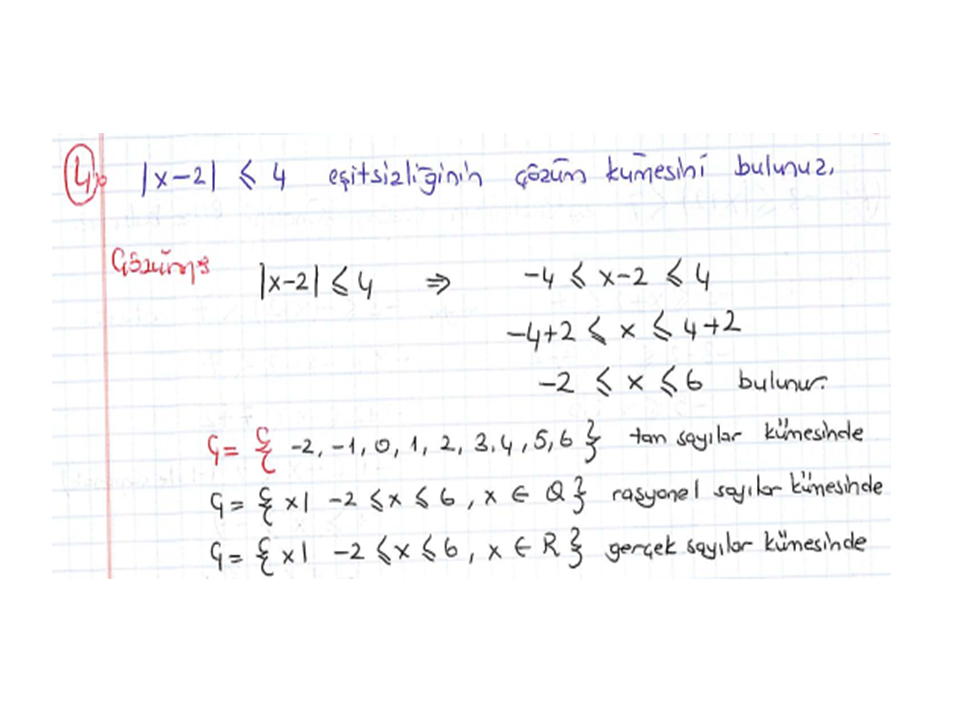 4) |x-2| ⩽ 4 eşitsizliğinin çözüm kümesini bulunuz.
Çözüm: |x-2| ⩽ 4 ⇒ -4 ⩽ x-2 ⩽ 4
-4+2 ⩽ x ⩽ 4+2
-2 ⩽ x ⩽ 6 bulunur.
Ç = { -2, -1, 0, 1, 2, 3, 4, 5, 6 } tam sayılar kümesinde
Ç = { x | -2 ⩽ x ⩽ 6, x ∈ Q } rasyonel sayılar kümesinde
Ç = { x | -2 ⩽ x ⩽ 6, x ∈ R } gerçek sayılar kümesinde